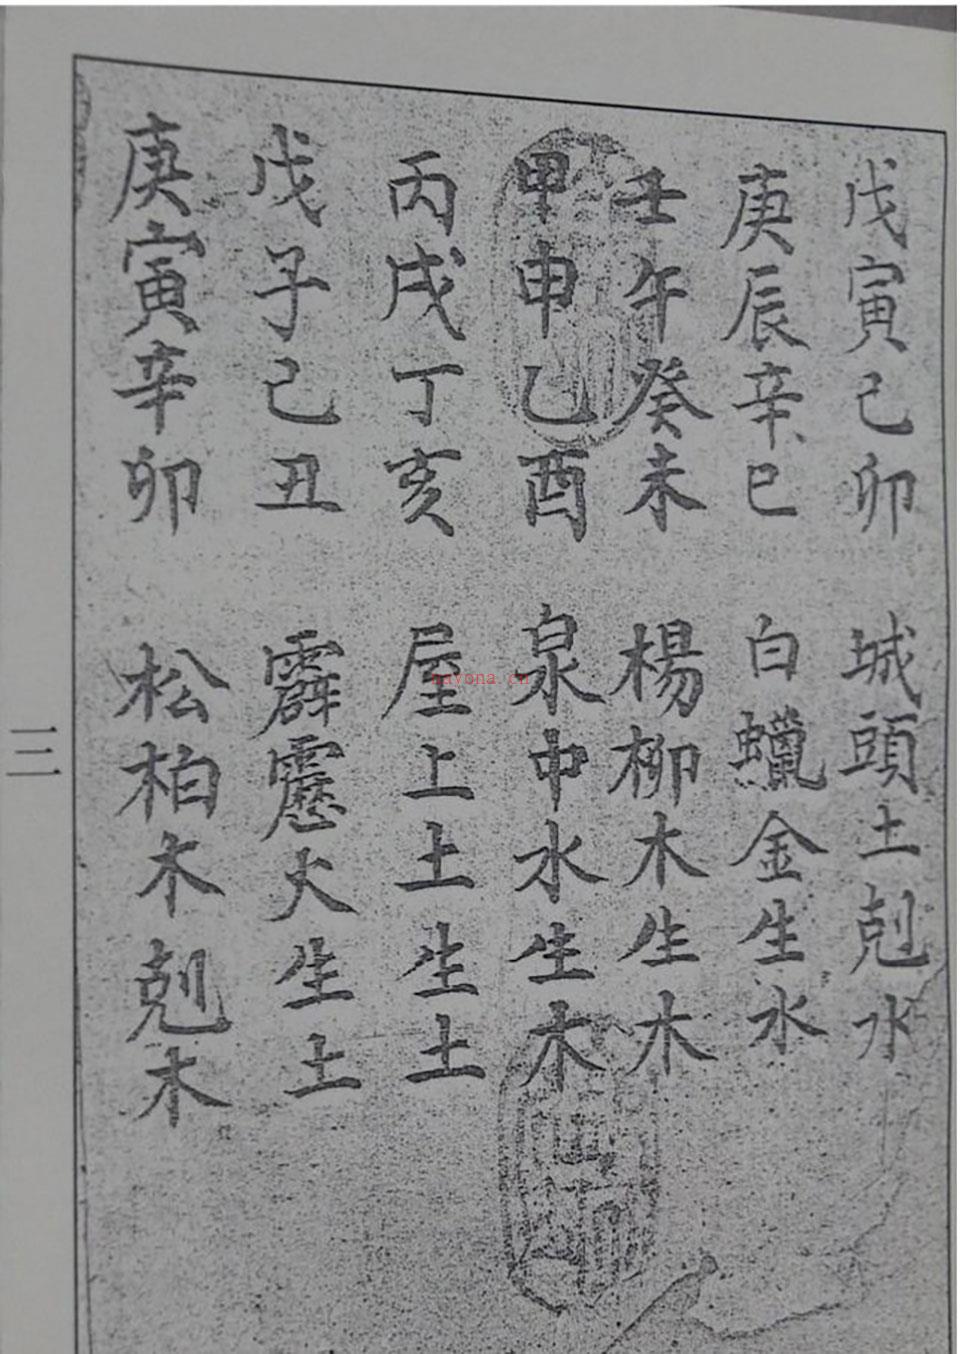 戊寅己卯 城頭土剋水
庚辰辛巳 白蠟金生水
壬午癸未 楊柳木生木
甲申乙酉 泉中水生木
丙戌丁亥 屋上土生土
戊子己丑 霹靂火生土
庚寅辛卯 松柏木剋木
三
navona.cn